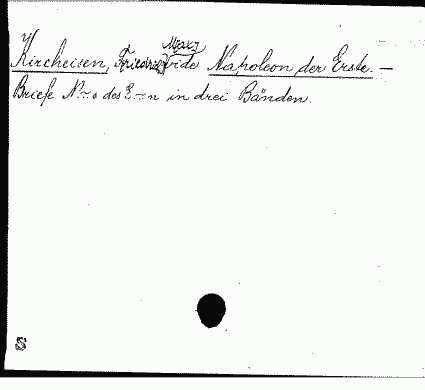 Kircheisen, Friedrich Max) vide Napoleon der Erste. —
Briefe N~s des E~n in drei Bänden.
S